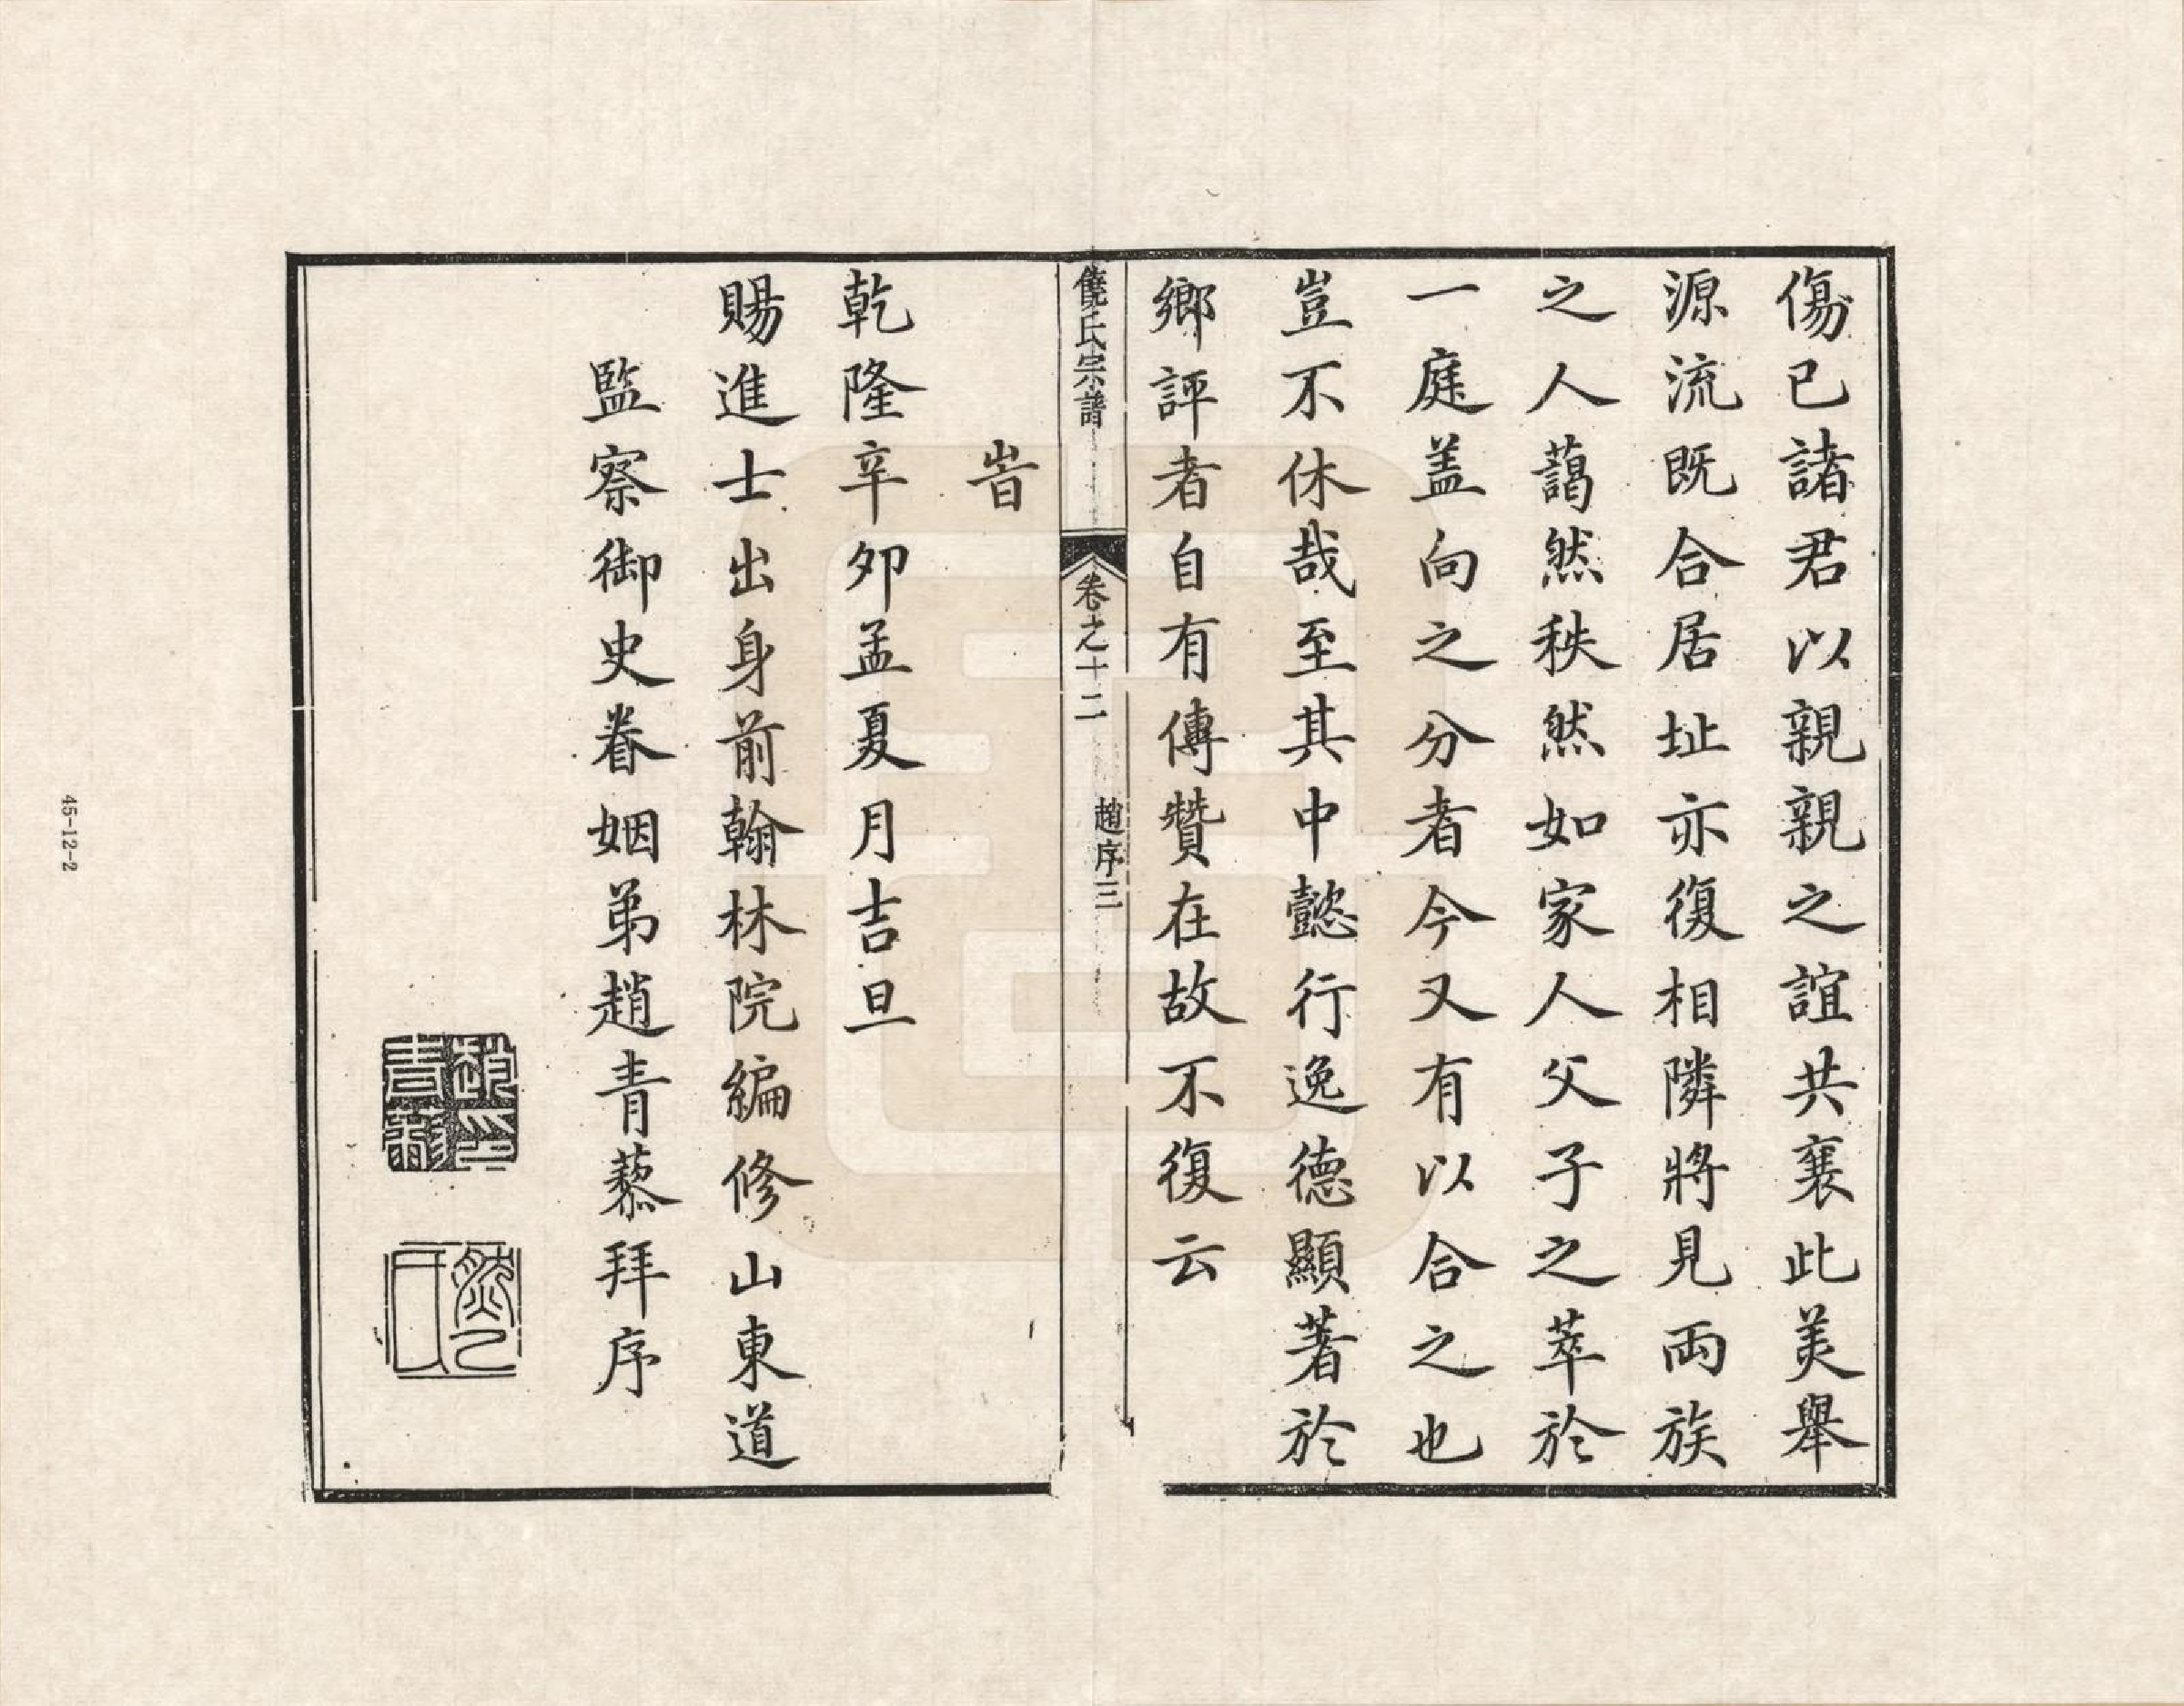 傷已諸君以親親之誼共襄此美舉
源流既合居址亦復相隣將見両族
之人藹然秩然如家人父子之萃於
一庭盖向之分者今又有以合之也
豈不休哉至其中懿行逸德顯著於
鄉評者自有傳贊在故不復云
饒氏宗譜
卷之十二
趙序三
旹
乾隆辛夘孟夏月吉旦
賜進士出身前翰林院編修山東道
監察御史眷姻弟趙青藜拜序
趙印青藜
然乙氏
45-12-2